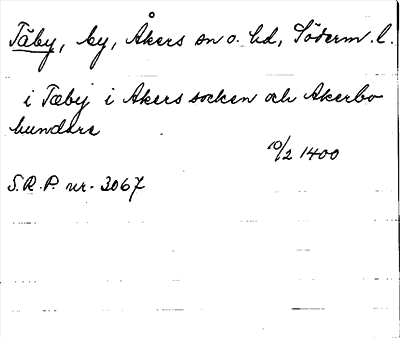 Täby, by, Åkers sn o. hd, Söderm. l.
i Tæby i Akers socken och Akerbo
hundare
10/2 1400
S.R.P. nr. 3067